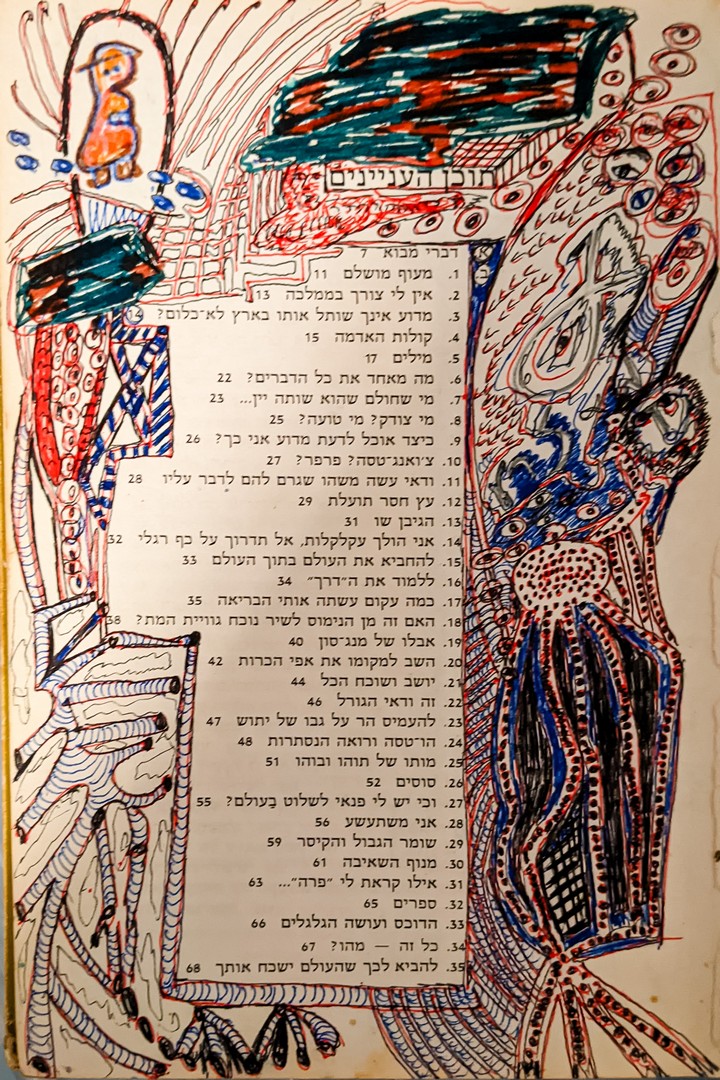 תוכן העניינים
דברי מבוא 7
1. מעוף מושלם 11
2. אין לי צורך בממלכה 13
3. מדוע אינך שותל אותו בארץ לא־כלום? 14
4. קולות האדמה 15
5. מילים 17
6. מה מאחד את כל הדברים? 22
7. מי שחולם שהוא שותה יין... 23
8. מי צודק? מי טועה? 25
9. כיצד אוכל לדעת מדוע אני כך? 26
10. צ'ואנג־טסה? פרפר? 27
11. ודאי עשה משהו שגרם להם לדבר עליו 28
12. עץ חסר תועלת 29
13. הגיבן שו 31
14. אני הולך עקלקלות, אל תדרוך על כף רגלי 32
15. להחביא את העולם בתוך העולם 33
16. ללמוד את ה״דרך״ 34
17. כמה עקום עשתה אותי הבריאה 35
18. האם זה מן הנימוס לשיר נוכח גוויית המת? 38
19. אבלו של מנג־סון 40
20. השב למקומו את אפי הכרות 42
21. יושב ושוכח הכל 44
22. זה ודאי הגורל 46
23. להעמיס הר על גבו של יתוש 47
24. הו־טסה ורואה הנסתרות 48
25. מותו של תוהו ובוהו 51
26. סוסים 52
27. וכי יש לי פנאי לשלוט בָעולם? 55
28. אני משתעשע 56
29. שומר הגבול והקיסר 59
30. מנוף השאיבה 61
31. אילו קראת לי ״פרה״... 63
32. ספרים 65
33. הדוכס ועושה הגלגלים 66
34. כל זה — מהו? 67
35. להביא לכך שהעולם ישכח אותך 68